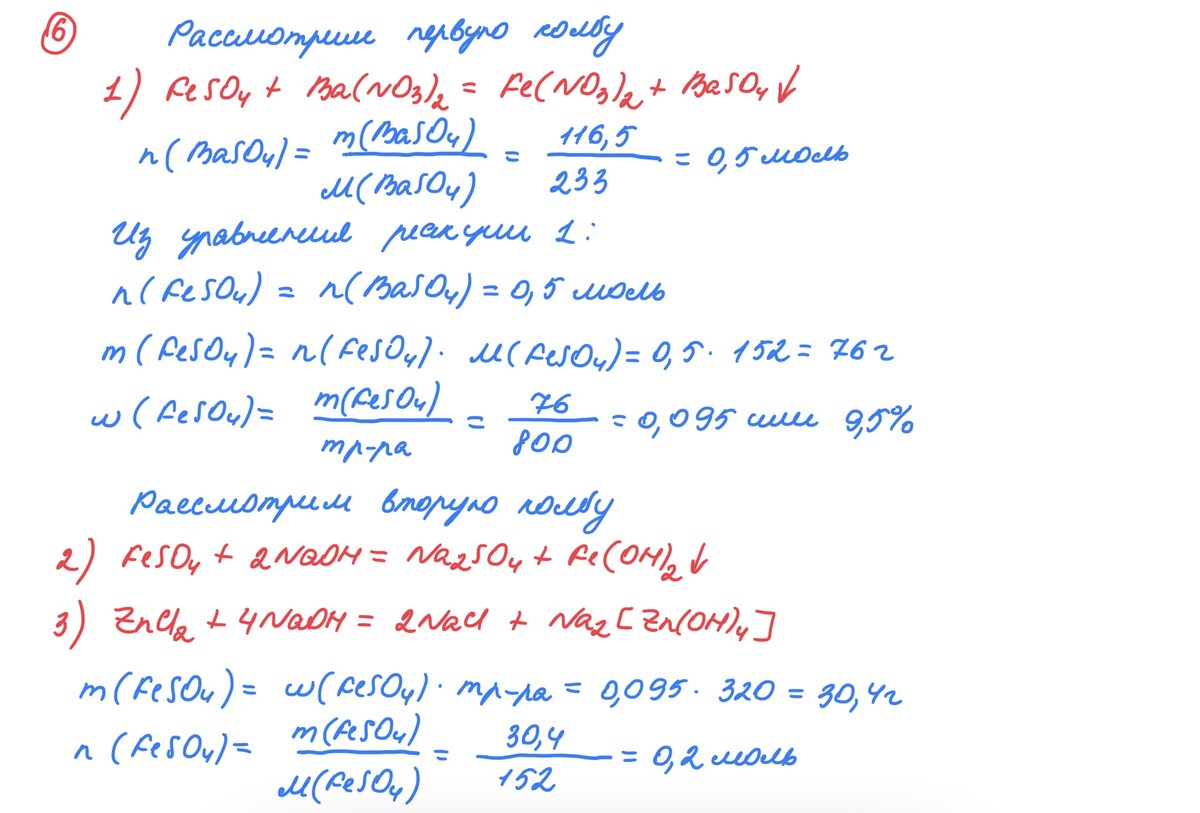 16 Рассмотрим первую колбу
1) FeSO₄ + Ba(NO₃)₂ = Fe(NO₃)₂ + BaSO₄↓
n(BaSO₄) = m(BaSO₄) / M(BaSO₄) = 116,5 / 233 = 0,5 моль
Из уравнения реакции 1:
n(FeSO₄) = n(BaSO₄) = 0,5 моль
m(FeSO₄) = n(FeSO₄) · M(FeSO₄) = 0,5 · 152 = 76 г
w(FeSO₄) = m(FeSO₄) / mр-ра = 76 / 800 = 0,095 или 9,5%
Рассмотрим вторую колбу
2) FeSO₄ + 2NaOH = Na₂SO₄ + Fe(OH)₂↓
3) ZnCl₂ + 4NaOH = 2NaCl + Na₂[Zn(OH)₄]
m(FeSO₄) = w(FeSO₄) · mр-ра = 0,095 · 320 = 30,4г
n(FeSO₄) = m(FeSO₄) / M(FeSO₄) = 30,4 / 152 = 0,2 моль